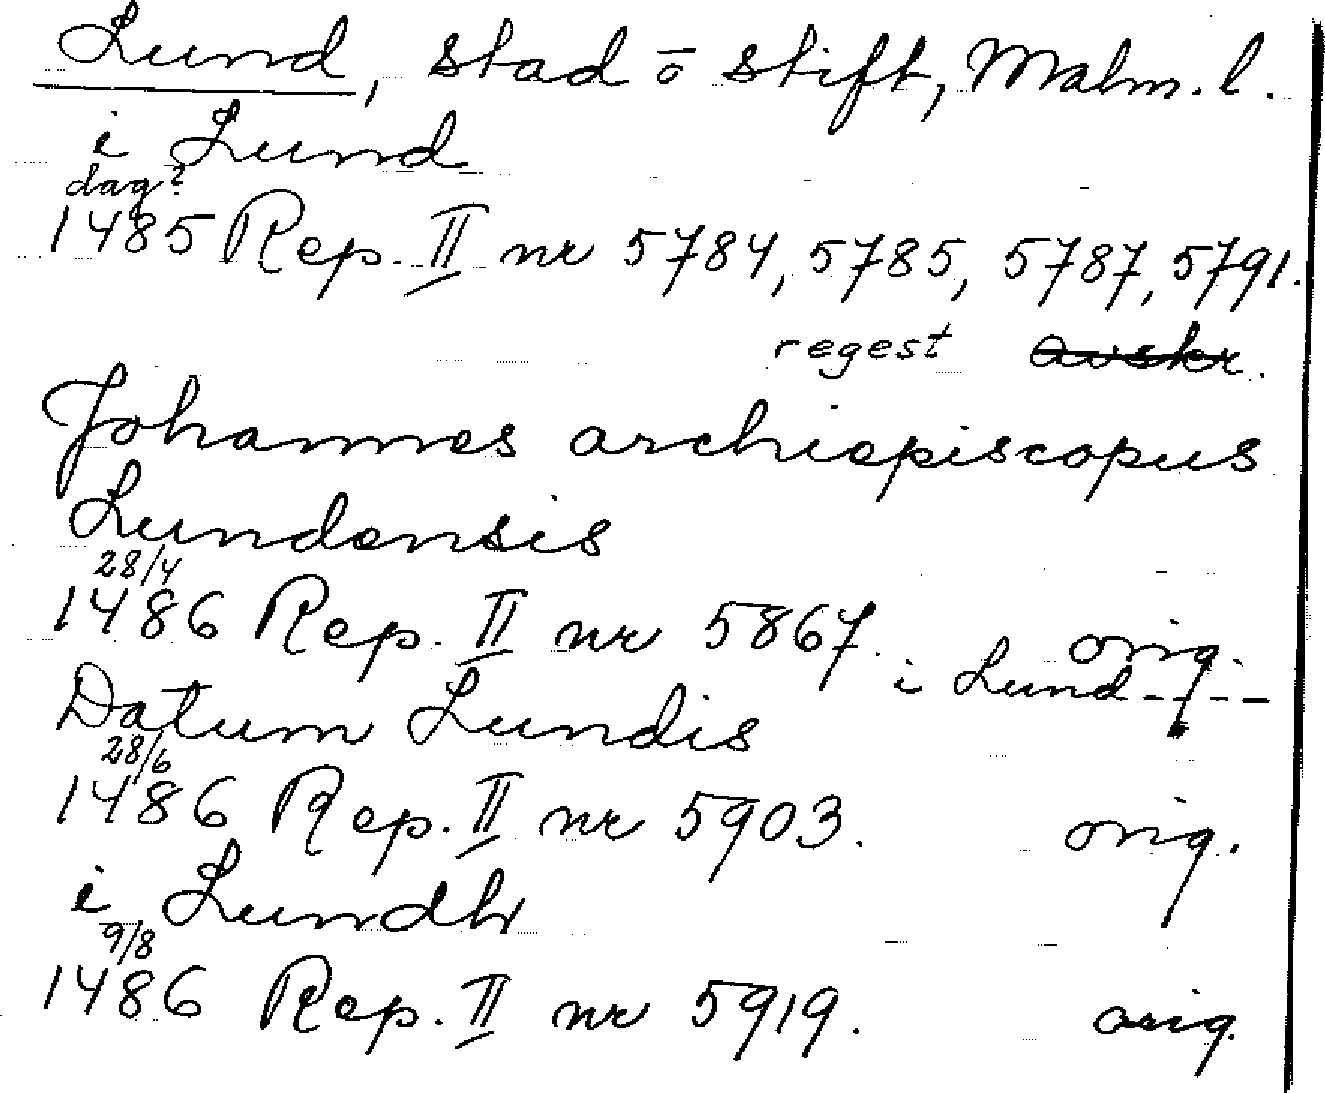 Lund, stad ō stift, Malm. l.
i Lund
dag?
1485 Rep. II nr 5784, 5785, 5787, 5791.
regest avskr.
Johannes archiepiscopus
Lundensis
28/4
1486 Rep. II nr 5867. orig.
i Lund - - - -
Datum Lundis
28/6
1486 Rep. II nr 5903. orig.
i Lundh
9/8
1486 Rep. II nr 5919. orig.